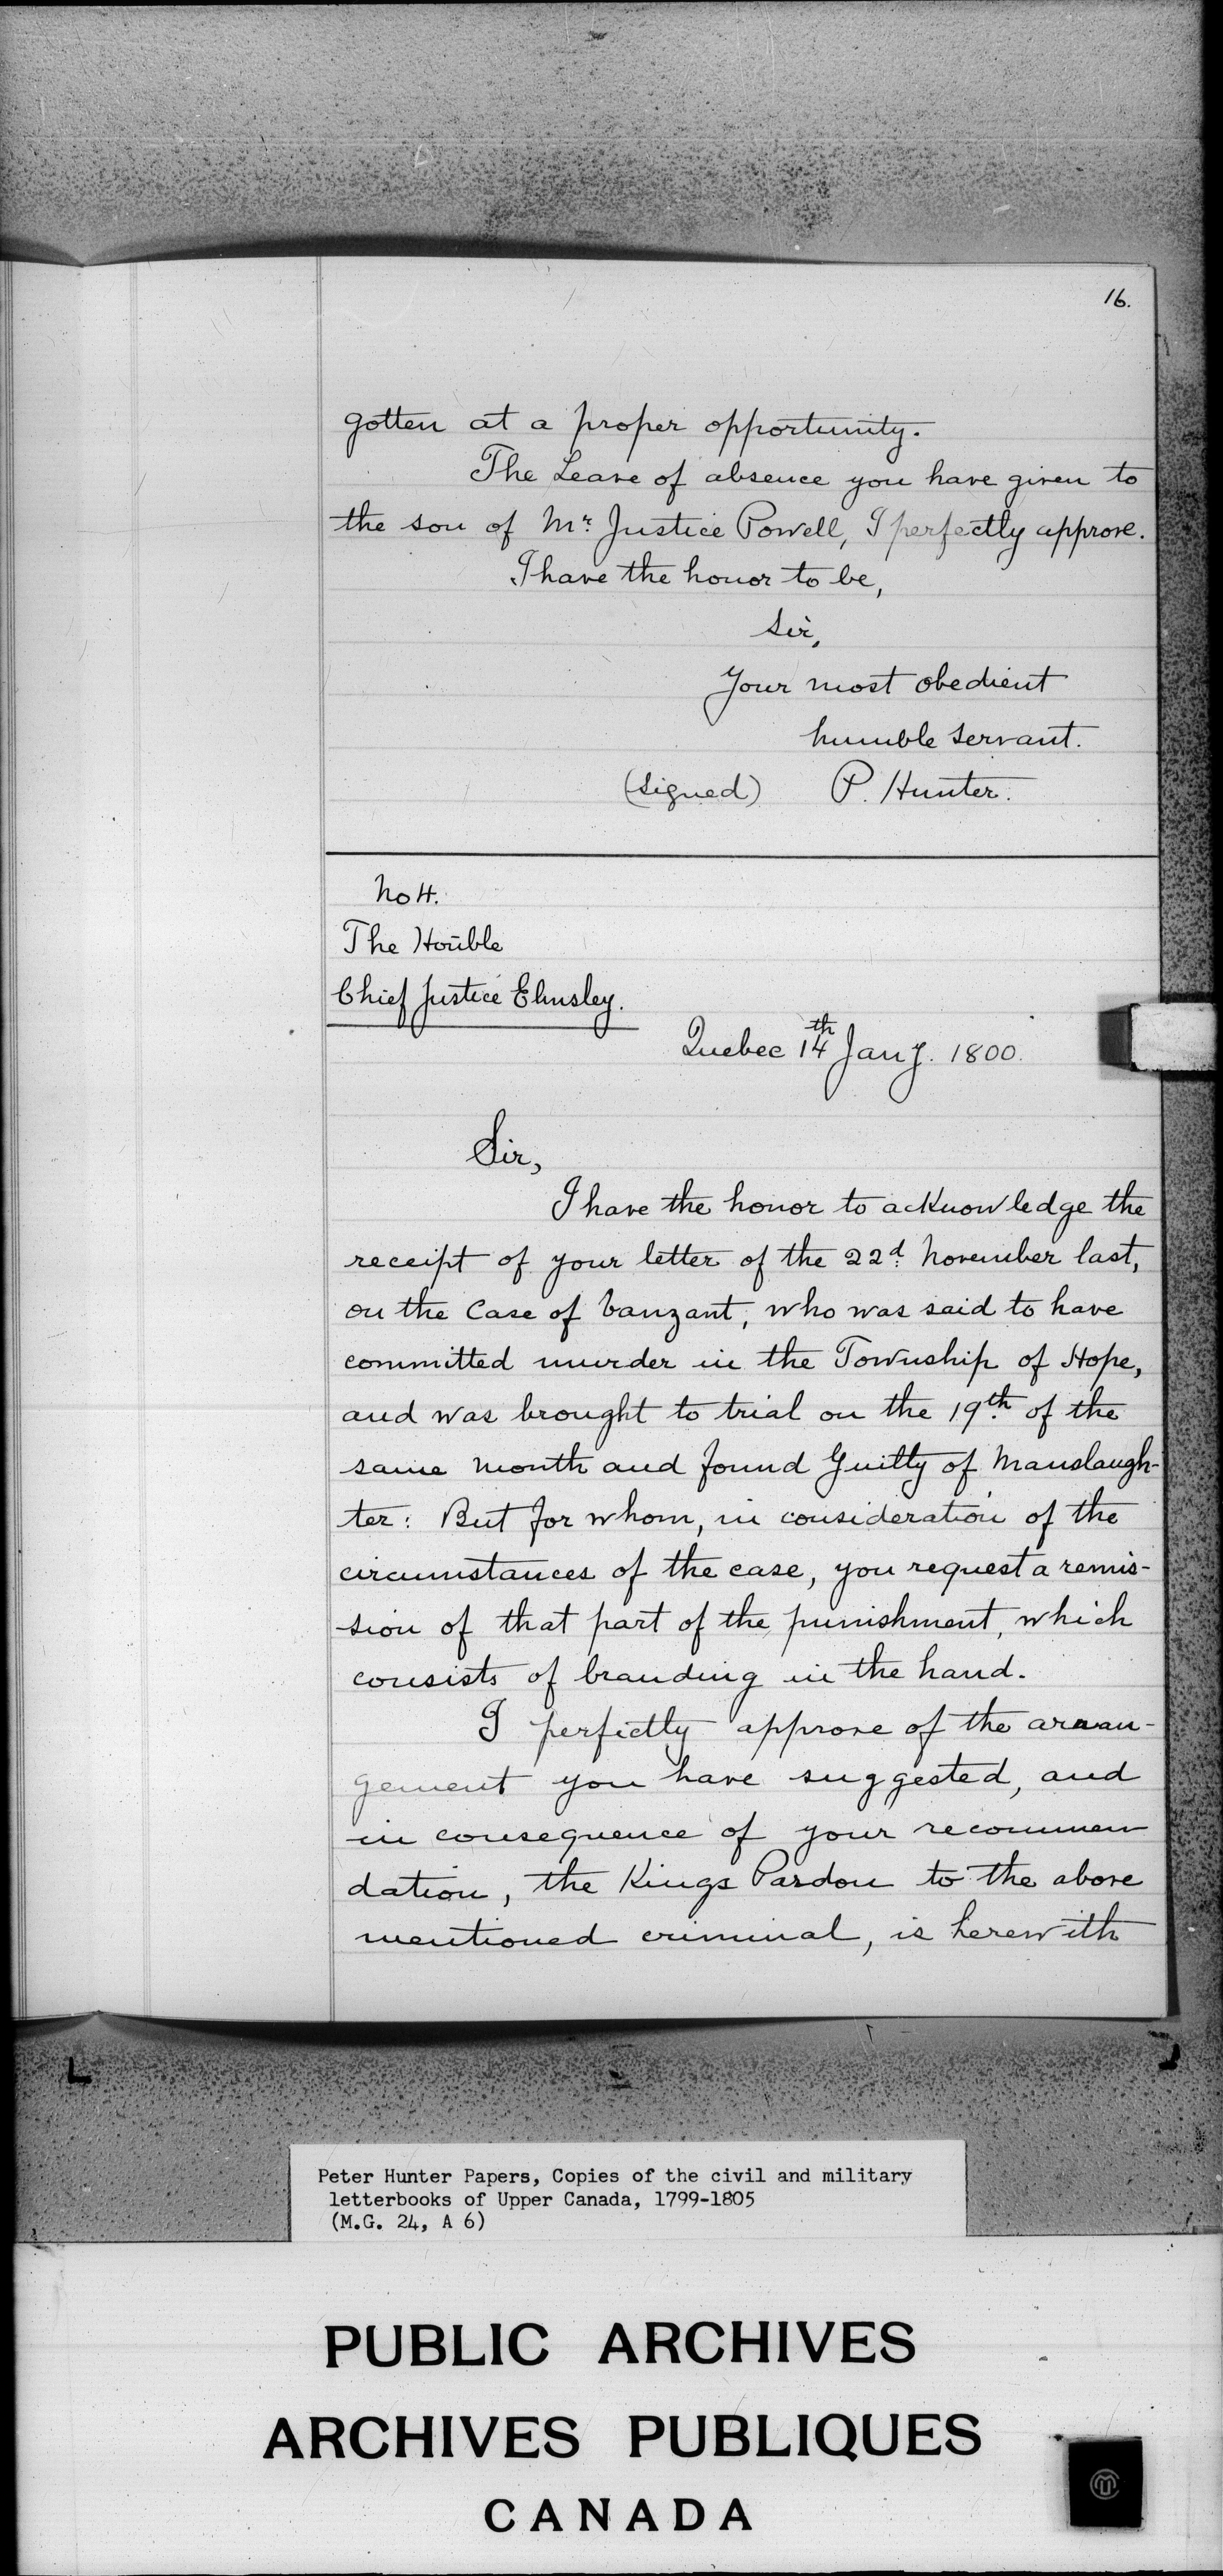 16.
gotten at a proper opportunity.
The Leave of absence you have given to
the son of Mr. Justice Powell, I perfectly approve.
I have the honor to be,
Sir,
Your most obedient
humble servant.
(signed) P. Hunter.
No 4.
The Honble
Chief Justice Elmsley.
Quebec 14th Jany. 1800.
Sir,
I have the honor to acknowledge the
receipt of your letter of the 22d. November last,
on the Case of Vanzant, who was said to have
committed murder in the Township of Hope,
and was brought to trial on the 19th. of the
same month and found Guilty of Manslaugh-
ter: But for whom, in consideration of the
circumstances of the case, you request a remis-
sion of that part of the punishment, which
consists of branding in the hand.
I perfectly approve of the arran-
gement you have suggested, and
in consequence of your recommen
dation, the Kings Pardon to the above
mentioned criminal, is herewith
Peter Hunter Papers, Copies of the civil and military
letterbooks of Upper Canada, 1799-1805
(M.G. 24, A 6)
PUBLIC ARCHIVES
ARCHIVES PUBLIQUES
CANADA